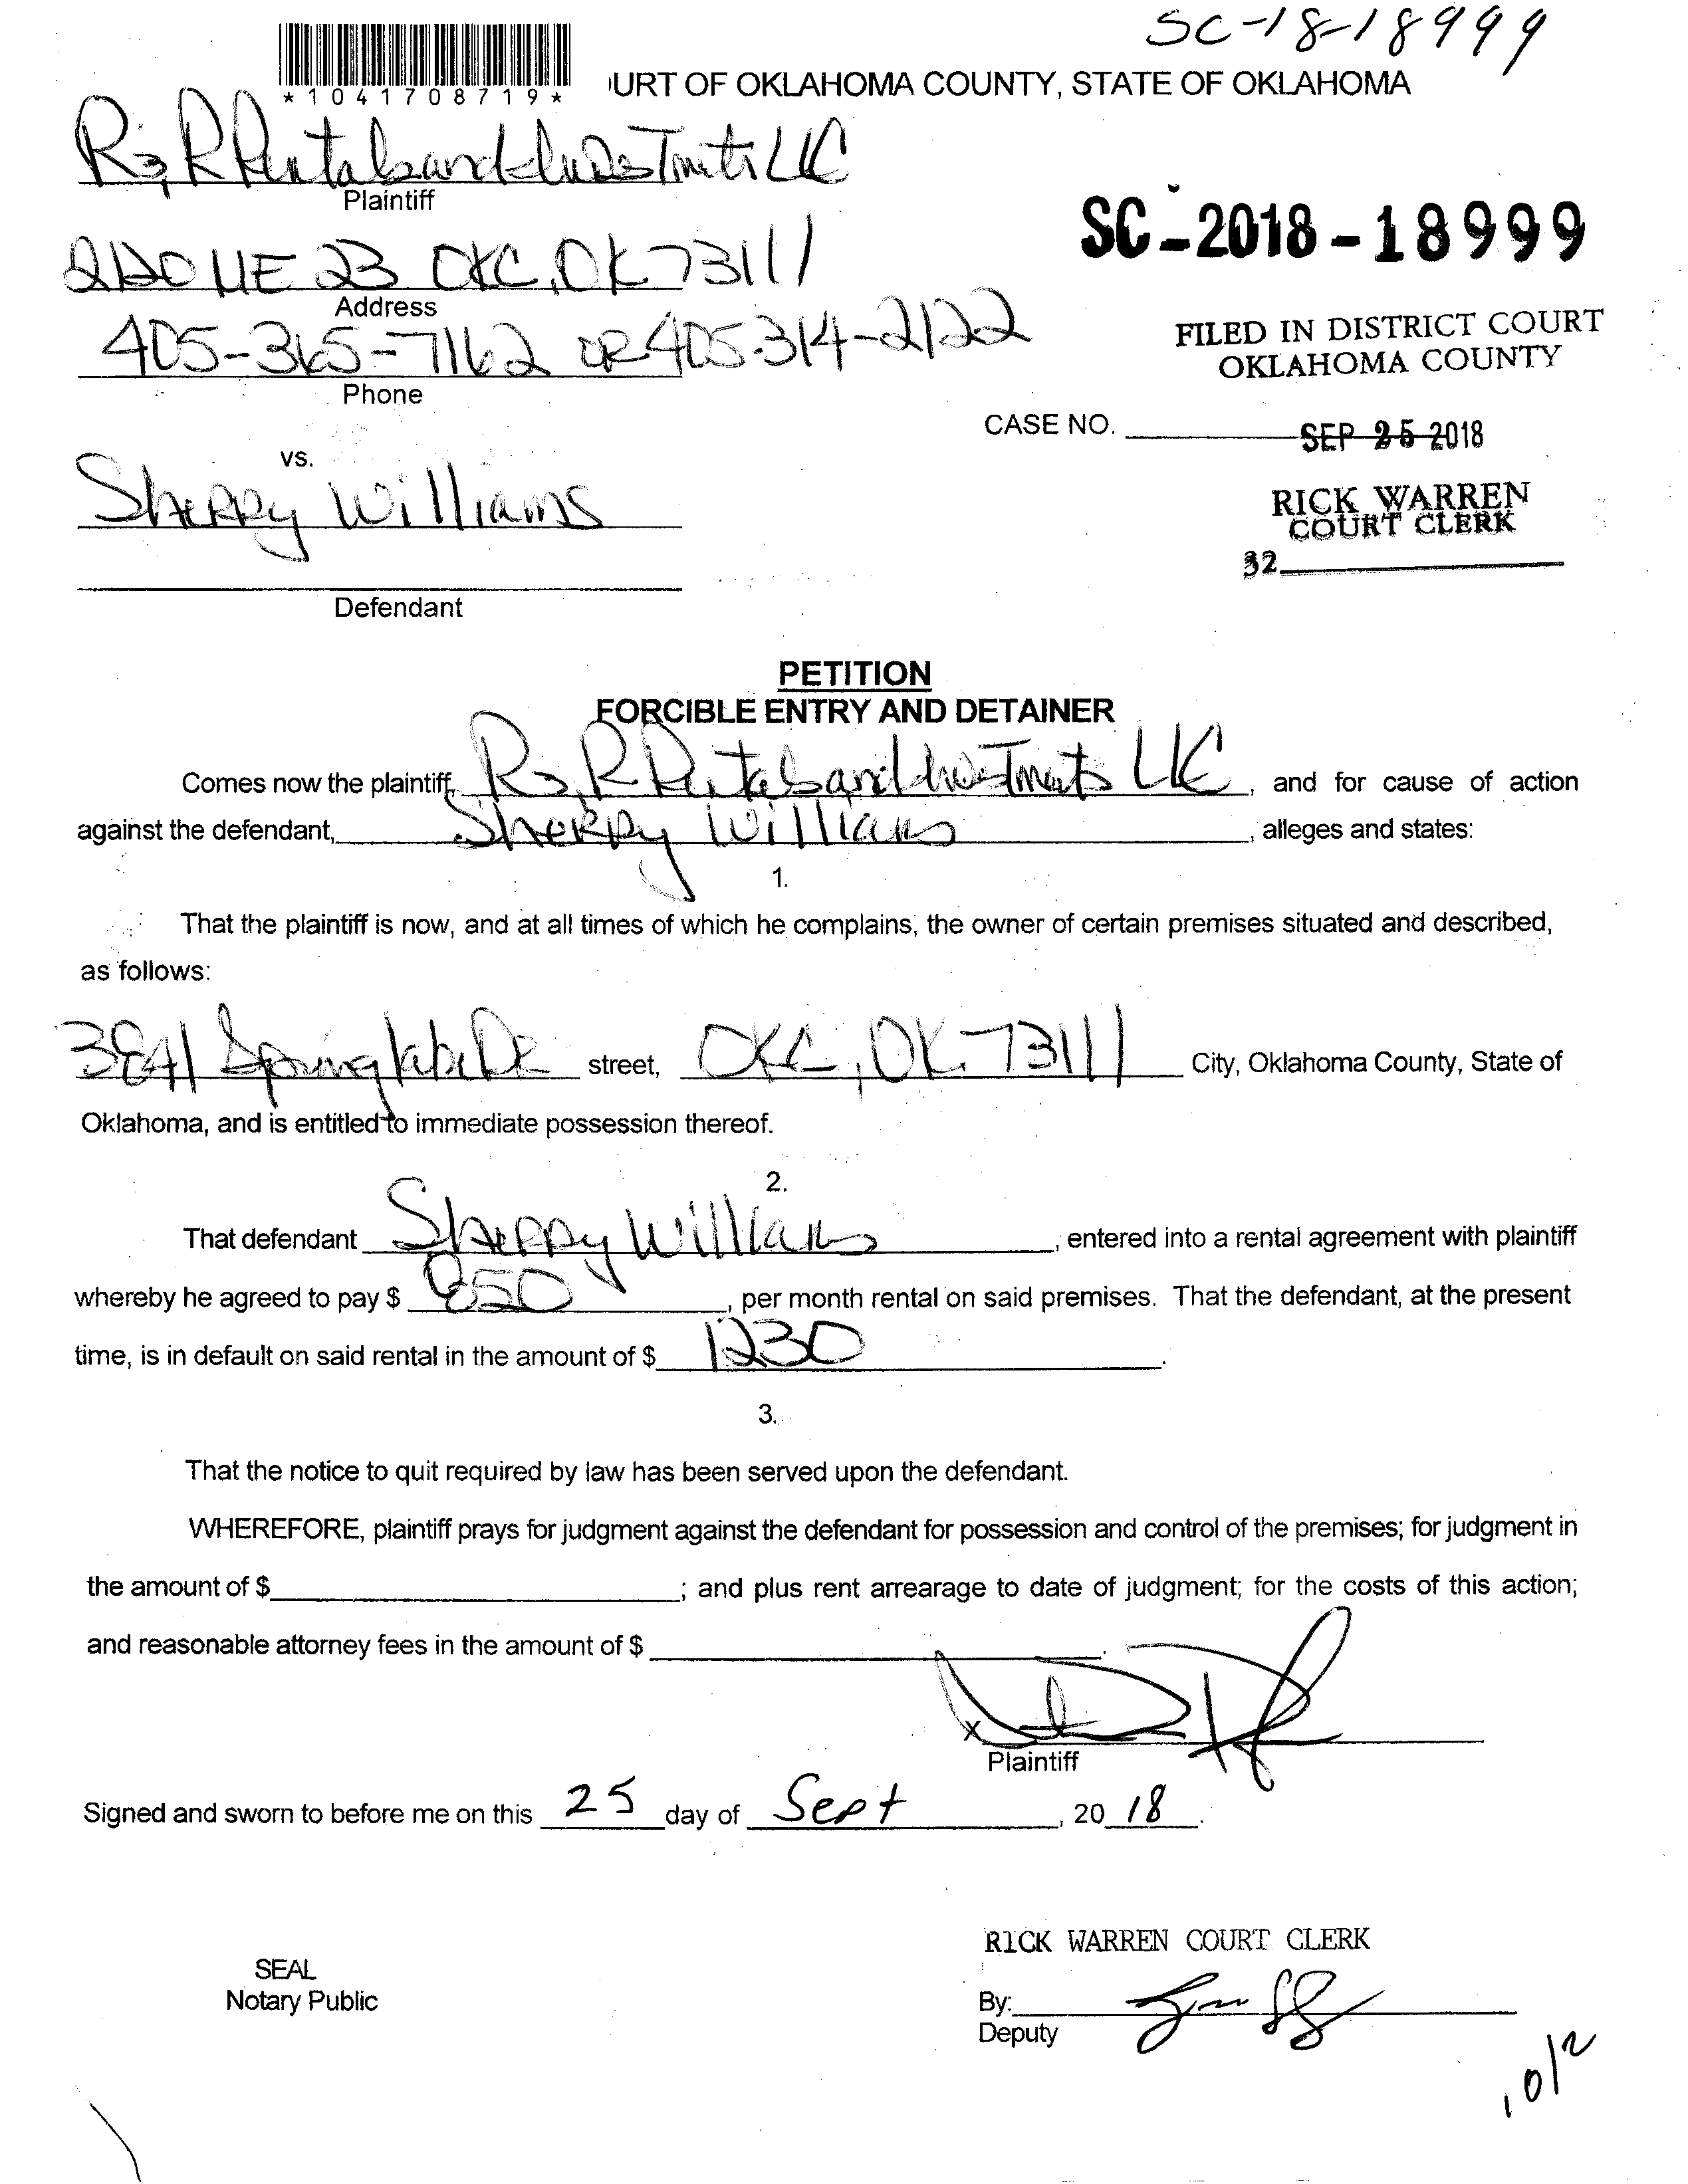 SC-18-18999
*1041708719*
URT OF OKLAHOMA COUNTY, STATE OF OKLAHOMA
R&R Rentals and Investments LLC
Plaintiff
SC-2018-18999
NE 23 OKC, OK 73111
Address
405-365-7162 OR 405-314-2122
Phone
FILED IN DISTRICT COURT
OKLAHOMA COUNTY
CASE NO.
SEP 25 2018
vs.
Sherry Williams
RICK WARREN
COURT CLERK
32
Defendant
PETITION
FORCIBLE ENTRY AND DETAINER
Comes now the plaintiff, R&R Rentals and Investments LLC, and for cause of action
against the defendant, Sherry Williams, alleges and states:
1.
That the plaintiff is now, and at all times of which he complains, the owner of certain premises situated and described,
as follows:
3841 Springlake Dr street, OKC, OK 73111 City, Oklahoma County, State of
Oklahoma, and is entitled to immediate possession thereof.
2.
That defendant Sherry Williams, entered into a rental agreement with plaintiff
whereby he agreed to pay $ 850, per month rental on said premises. That the defendant, at the present
time, is in default on said rental in the amount of $ 1230.
3.
That the notice to quit required by law has been served upon the defendant.
WHEREFORE, plaintiff prays for judgment against the defendant for possession and control of the premises; for judgment in
the amount of $ ; and plus rent arrearage to date of judgment; for the costs of this action;
and reasonable attorney fees in the amount of $ .
X
Plaintiff
Signed and sworn to before me on this 25 day of Sept, 20 18.
RICK WARREN COURT CLERK
SEAL
Notary Public
By:
Deputy
10/2